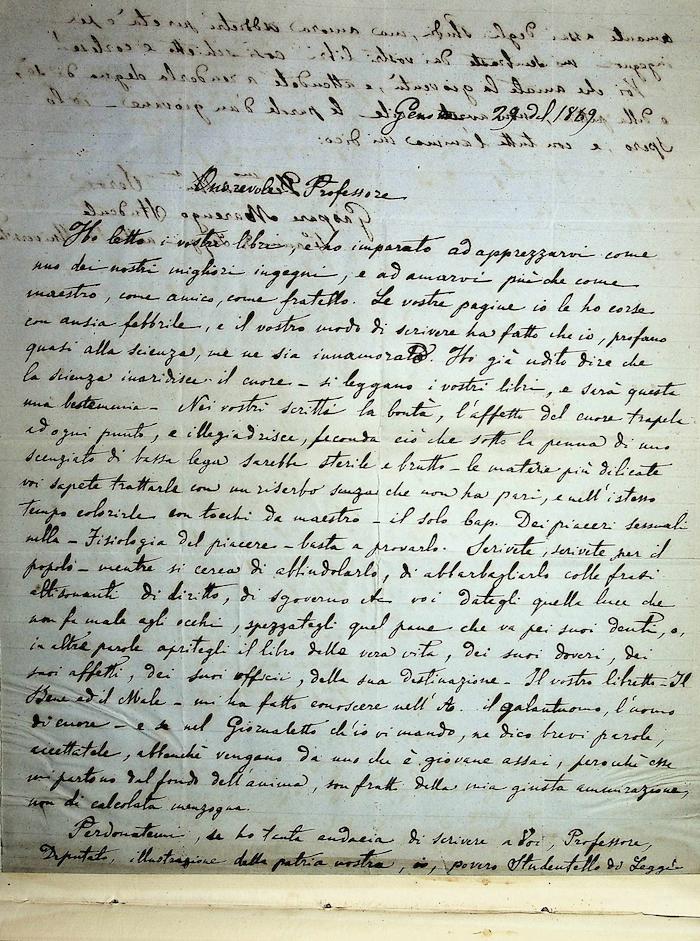 Genova, 29 del 1869
Onorevole Professore
Ho letto i vostri libri, e ho imparato ad apprezzarvi come
uno dei nostri migliori ingegni, e ad amarvi più che come
maestro, come amico, come fratello. Le vostre pagine io le ho corse
con ansia febbrile, e il vostro modo di scrivere ha fatto che io, profano
quasi alla scienza, me ne sia innamorato. Ho già udito dire che
la scienza inaridisce il cuore – si leggano i vostri libri, e sarà questa
una bestemmia – Nei vostri scritti la bontà, l'affetto del cuore trapela
ad ogni punto, e illegiadrisce, feconda ciò che sotto la penna di uno
scenziato di bassa lega sarebbe sterile e brutto – le materie più dilicate
voi sapete trattarle con un riserbo senza che non ha pari, e nell'istesso
tempo colorirle con tocchi da maestro – il solo Cap. Dei piaceri sessuali
nella – Fisiologia del piacere – basta a provarlo. Scrivete, scrivete per il
popolo – mentre si cerca di abbindolarlo, di abbarbagliarlo colle frasi
altisonanti di diritto, di sgoverno voi dategli quella luce che
non fa male agli occhi, spezzategli quel pane che va pei suoi denti, o,
in altre parole apritegli il libro della vera vita, dei suoi doveri, dei
suoi affetti, dei suoi officii, della sua destinazione – Il vostro libretto – Il
Bene ed il Male – mi ha fatto conoscere nell'A. il galantuomo, l'uomo
di cuore – e se nel Giornaletto ch'io vi mando, ne dico brevi parole,
accettatele, abbenchè vengano da uno che è giovane assai, perochè esse
mi partono dal fondo dell'anima, son frutti della mia giusta ammirazione,
non di calcolata menzogna.
Perdonatemi, se ho tanta audacia di scrivere a Voi, Professore,
Deputato, illustrazione della patria vostra, io, povero Studentello di Leggi